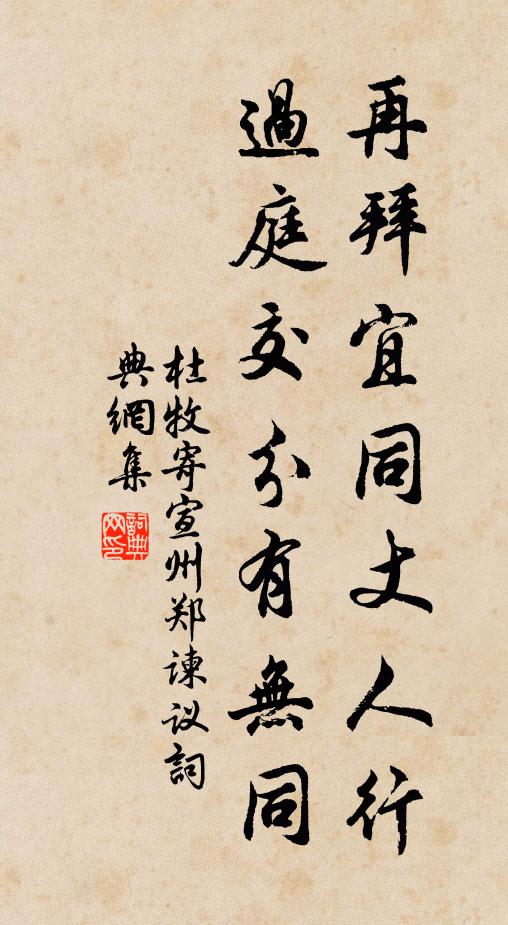 再拜宜同丈人行
過庭交分有無同
杜牧寄宣州郑谏议詞
典網集
詞典網印